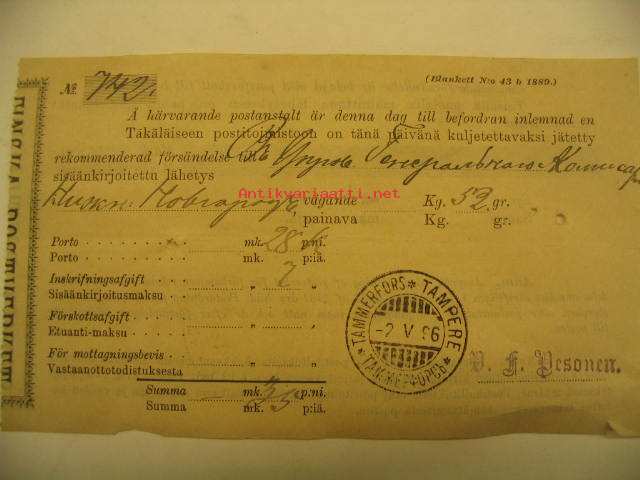 № 742.
(Blankett N:o 43 b 1889.)
Å härvarande postanstalt är denna dag till befordran inlemnad en
Täkäläiseen postitoimistoon on tänä päivänä kuljetettavaksi jätetty
rekommenderad försändelse till Генеральнаго Комиссар
sisäänkirjoitettu lähetys
Нижн. Новгородъ vägande Kg. 52 gr.
painava Kg. gr.
Antikvariaatti.net
Porto mk. 28 p:ni.
Porto mk. p:iä.
Inskrifningsafgift „ 7 „
Sisäänkirjoitusmaksu „ „
Förskottsafgift „ „
Etuanti-maksu „ „
För mottagningsbevis „ „
Vastaanottotodistuksesta
Summa mk. 35 p:ni.
Summa mk. p:iä.
TAMMERFORS * TAMPERE
-2 V 96
* ТАММЕРФОРСЪ *
V. F. Vesonen.
FINSKA POSTVERKET